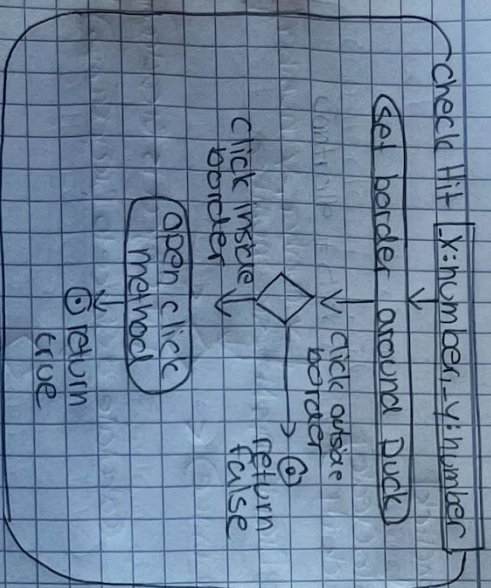 Check Hit
_x:number, _y:number
Set border around Duck
click outside
border
return
false
Click inside
border
open click
method
return
true